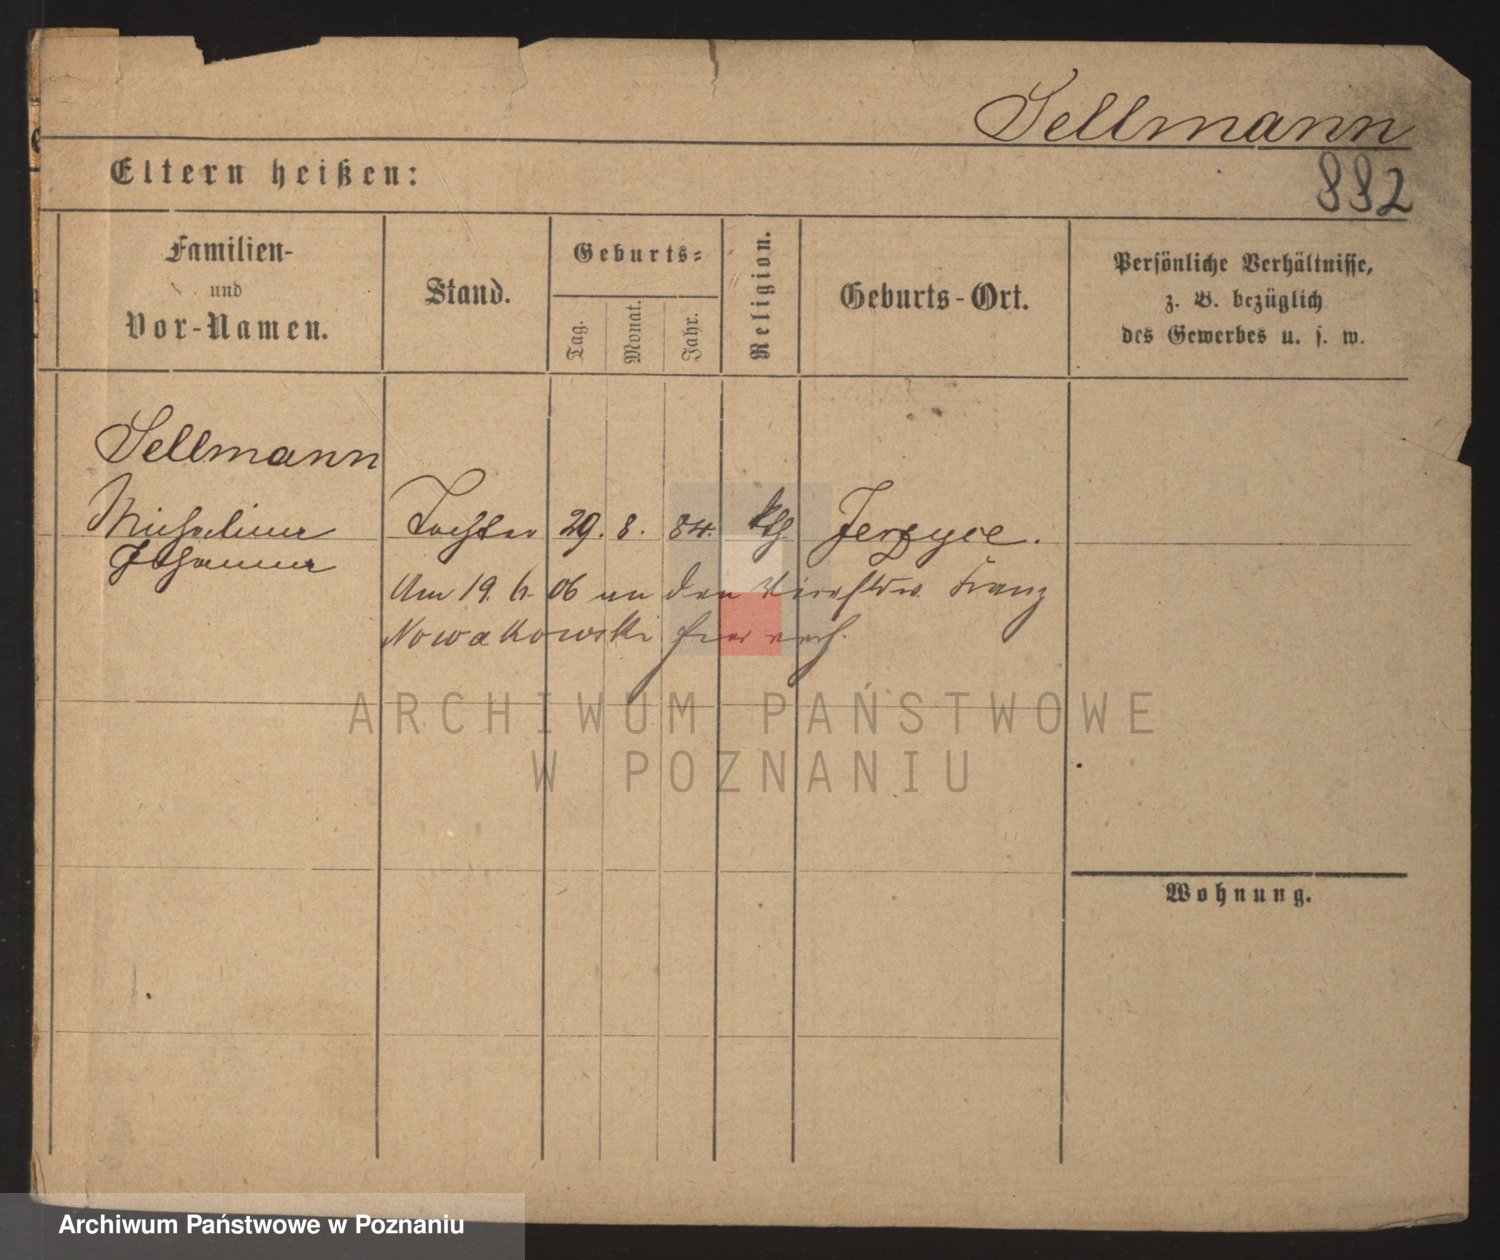 Sellmann
882
Eltern heißen:
Familien-
und
Vor-Namen.
Stand.
Geburts-
Tag.
Monat.
Jahr.
Religion.
Geburts-Ort.
Persönliche Verhältnisse,
z. B. bezüglich
des Gewerbes u. s. w.
Sellmann
Michalina Tochter 29. 8. 84. kth Jerzyce.
Johanna
Am 19. 6. 06 an den Franz
Nowakowski hier verh.
ARCHIWUM PAŃSTWOWE
W POZNANIU
Wohnung.
Archiwum Państwowe w Poznaniu